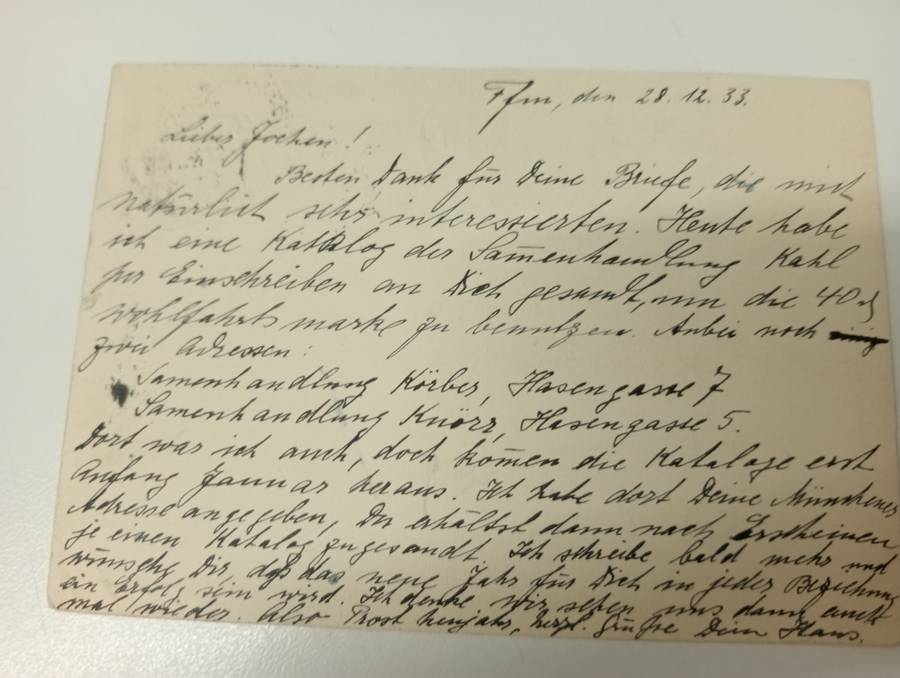 Ffm, den 28.12.33.
Lieber Jochen!
Besten Dank für Deine Briefe, die mich
natürlich sehr interessierten. Heute habe
ich eine Katalog der Samenhandlung Kahl
per Einschreiben an Dich gesandt, um die 40
wohlfahrtsmarke zu benutzen. Anbei noch
zwei Adressen:
Samenhandlung Körber, Hasengasse 7
Samenhandlung Knörr, Hasengasse 5.
Dort war ich auch, doch kom̄en die Kataloge erst
Anfang Januar heraus. Ich habe dort Deine Münchener
Adresse angegeben, Du erhältst dann nach Erscheinen
je einen Katalog zugesandt. Ich schreibe bald mehr und
wünsche Dir, daß das neue Jahr für Dich in jeder Beziehung
ein Erfolg sein wird. Ich denke wir sehen uns dann auch
mal wieder. Also Prost Neujahr, herzl. Grüße Dein Hans.